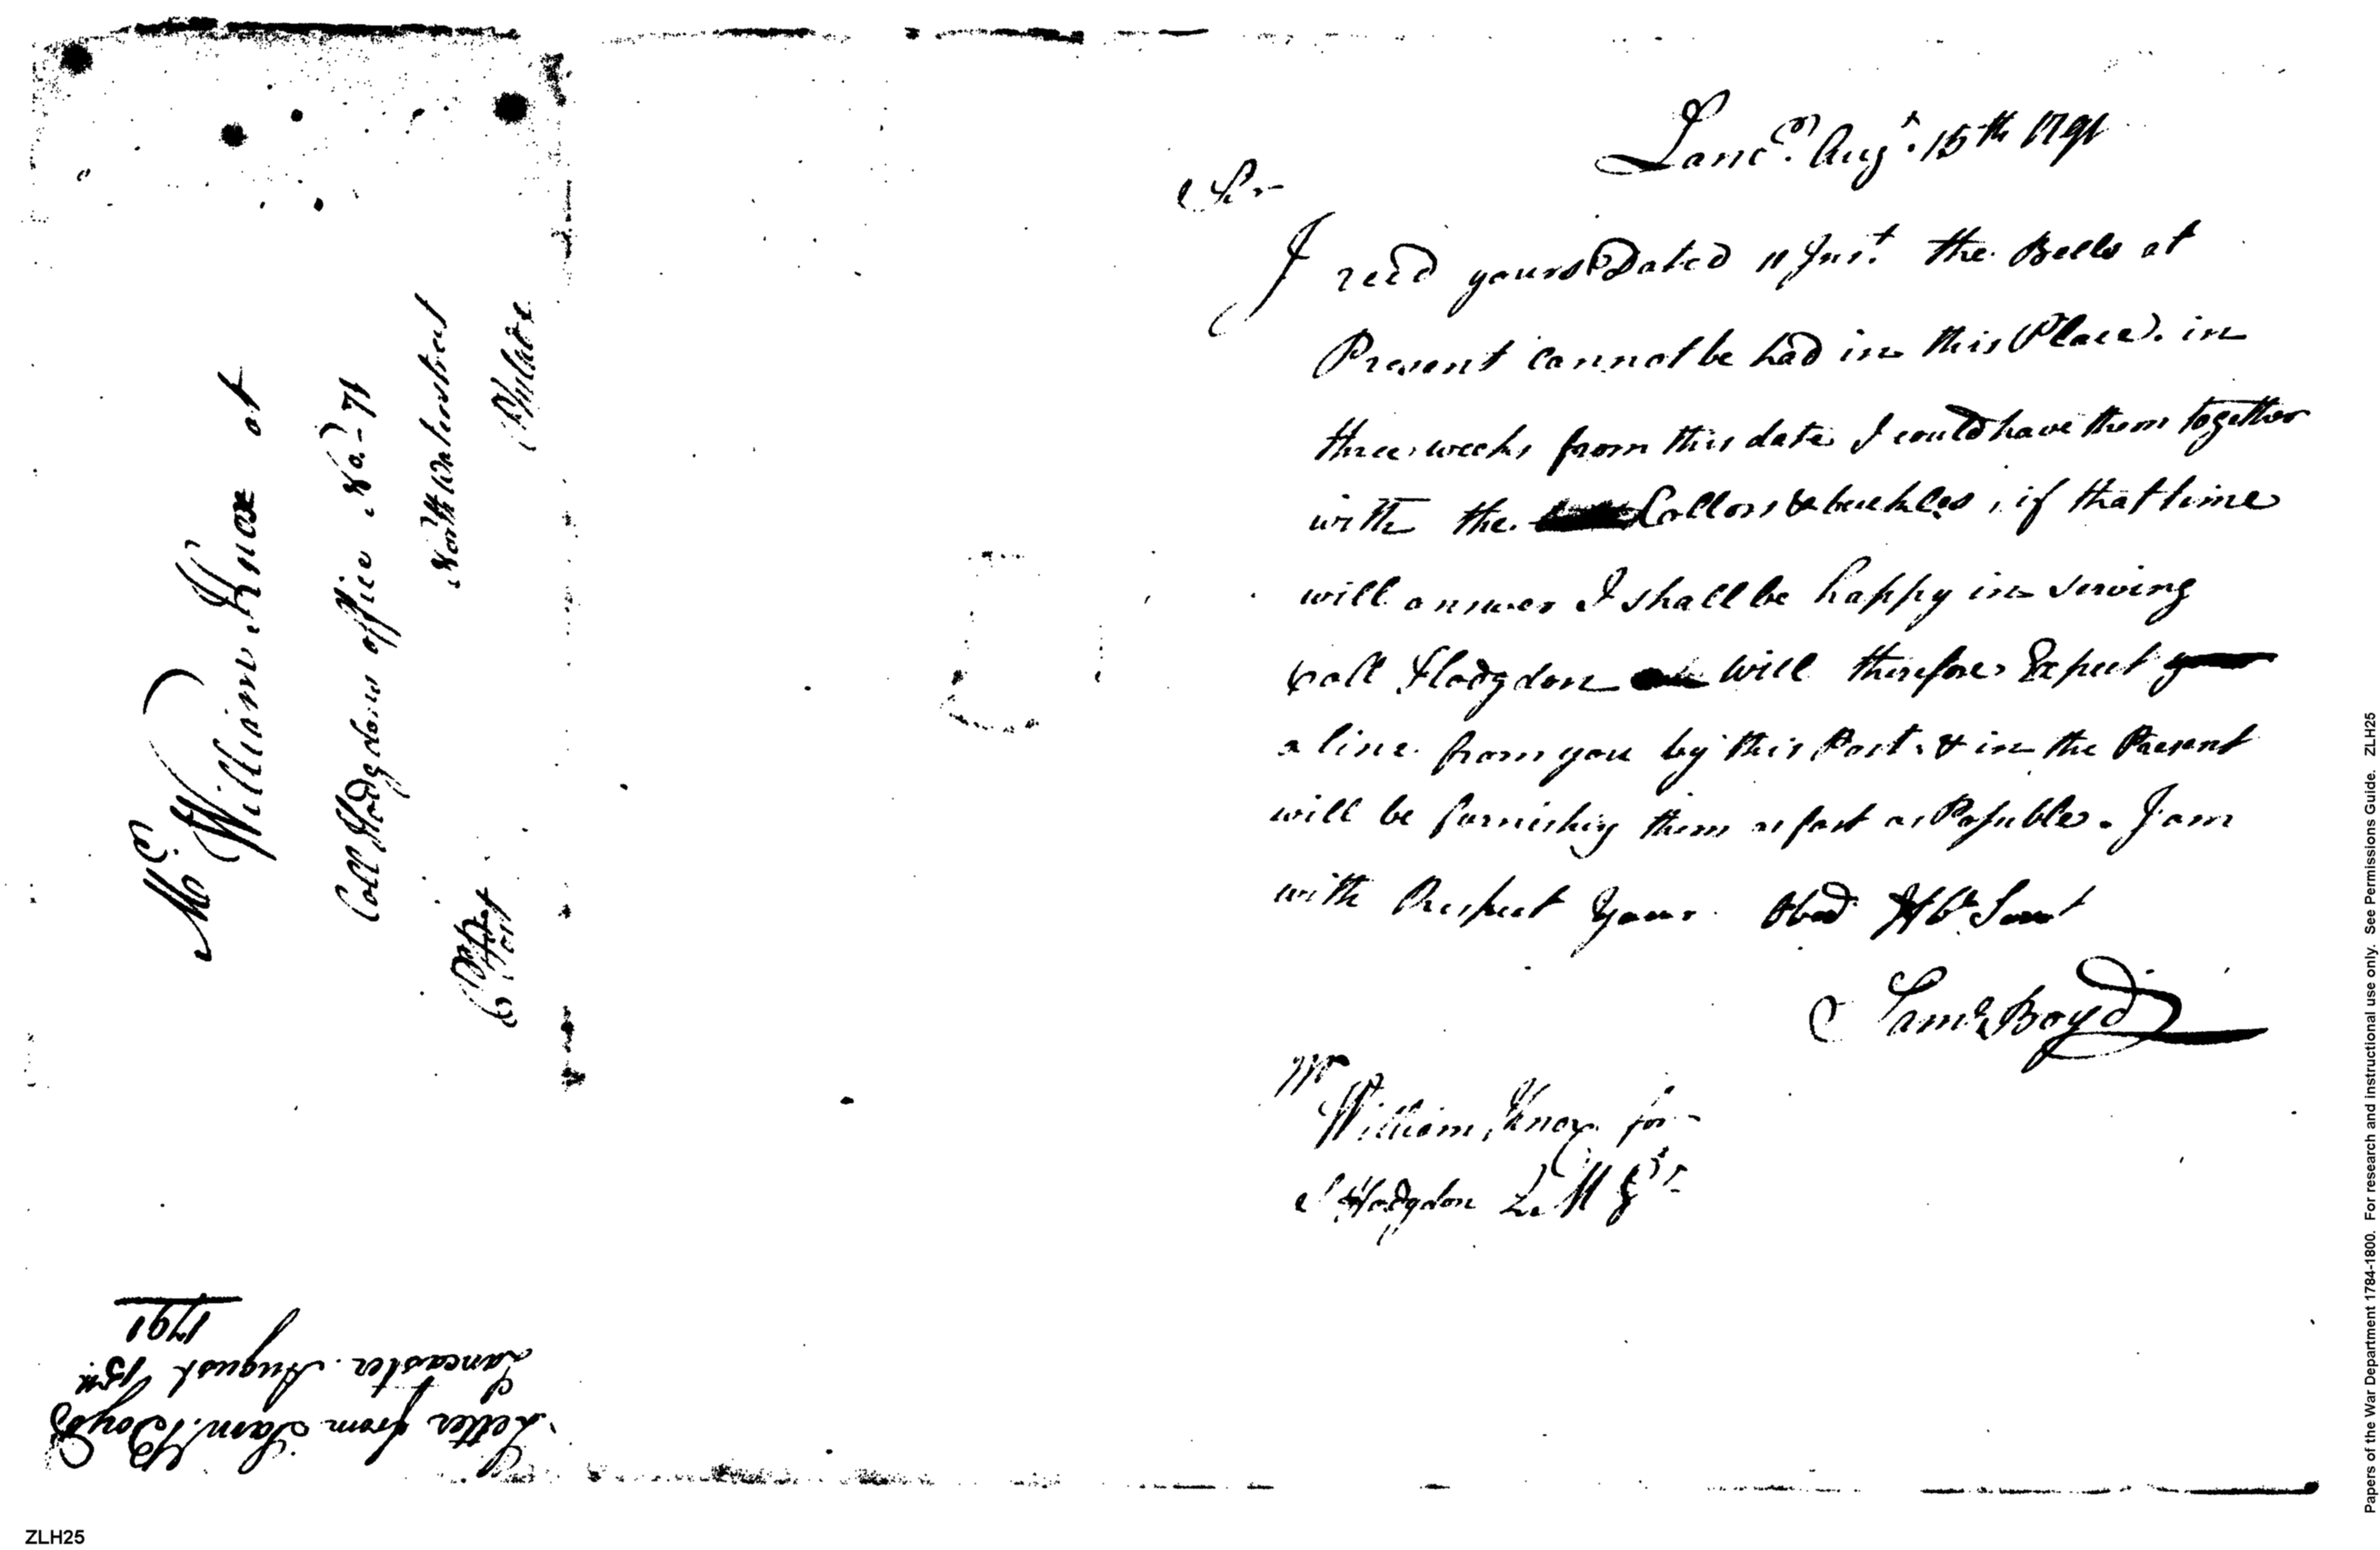 Lancr. Augt. 15th 1791
Sir
I recd yours Dated 11 Inst. the Bells at
Present cannot be had in this Place. in
three weeks from this date I could have them together
with the Collors & buckles, if that time
will answer I shall be happy in serving
Coll Hodgdon will therefore Expect
a line from you by this Post & in the Present
will be furnishing them as fast as Possuble. I am
with Respect Your Obed Hbe Servt
Saml Boyd
Mr
William Knox for
S Hodgdon Q M G
Mr William Knox at
Coll Hodgdons office No. 71
North Waterstreet
Philda
Post
Letter from Saml Boyd
Lancaster August 15th
1791
ZLH25
Papers of the War Department 1784-1800. For research and instructional use only. See Permissions Guide. ZLH25